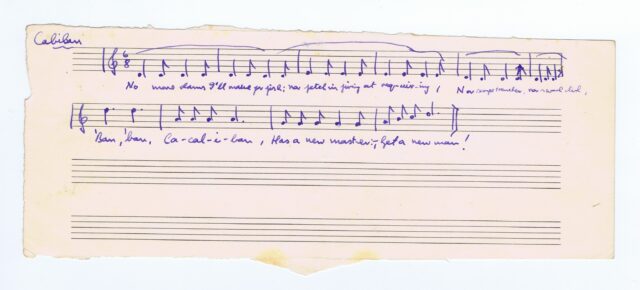 Caliban
6
8
No more dams I'll make for fish; nor fetch in firing at requir-ing, Nor scrape trencher nor wash dish,
'Ban, 'ban, Ca-cal-i-ban, Has a new master:, Get a new man!